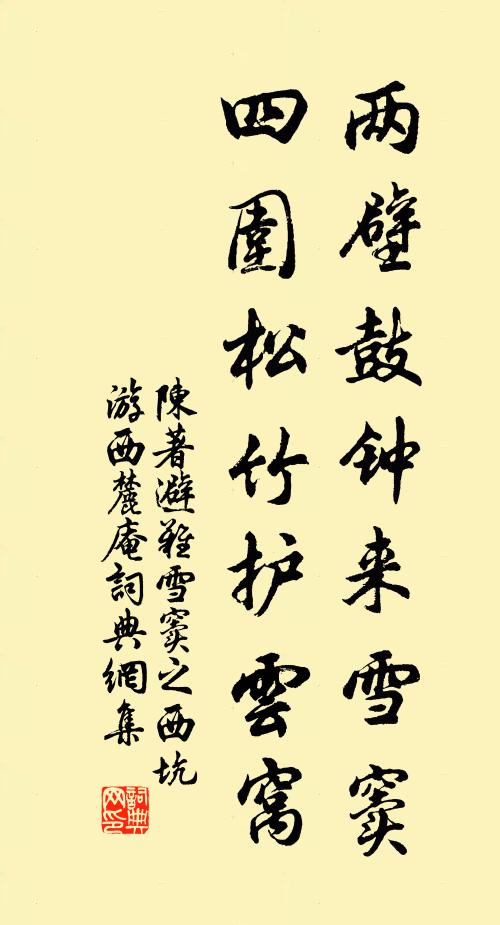 两壁鼓钟来雪窦
四围松竹护雲窝
陳著避難雪窦之西坑
游西麓庵詞典網集
詞典网印